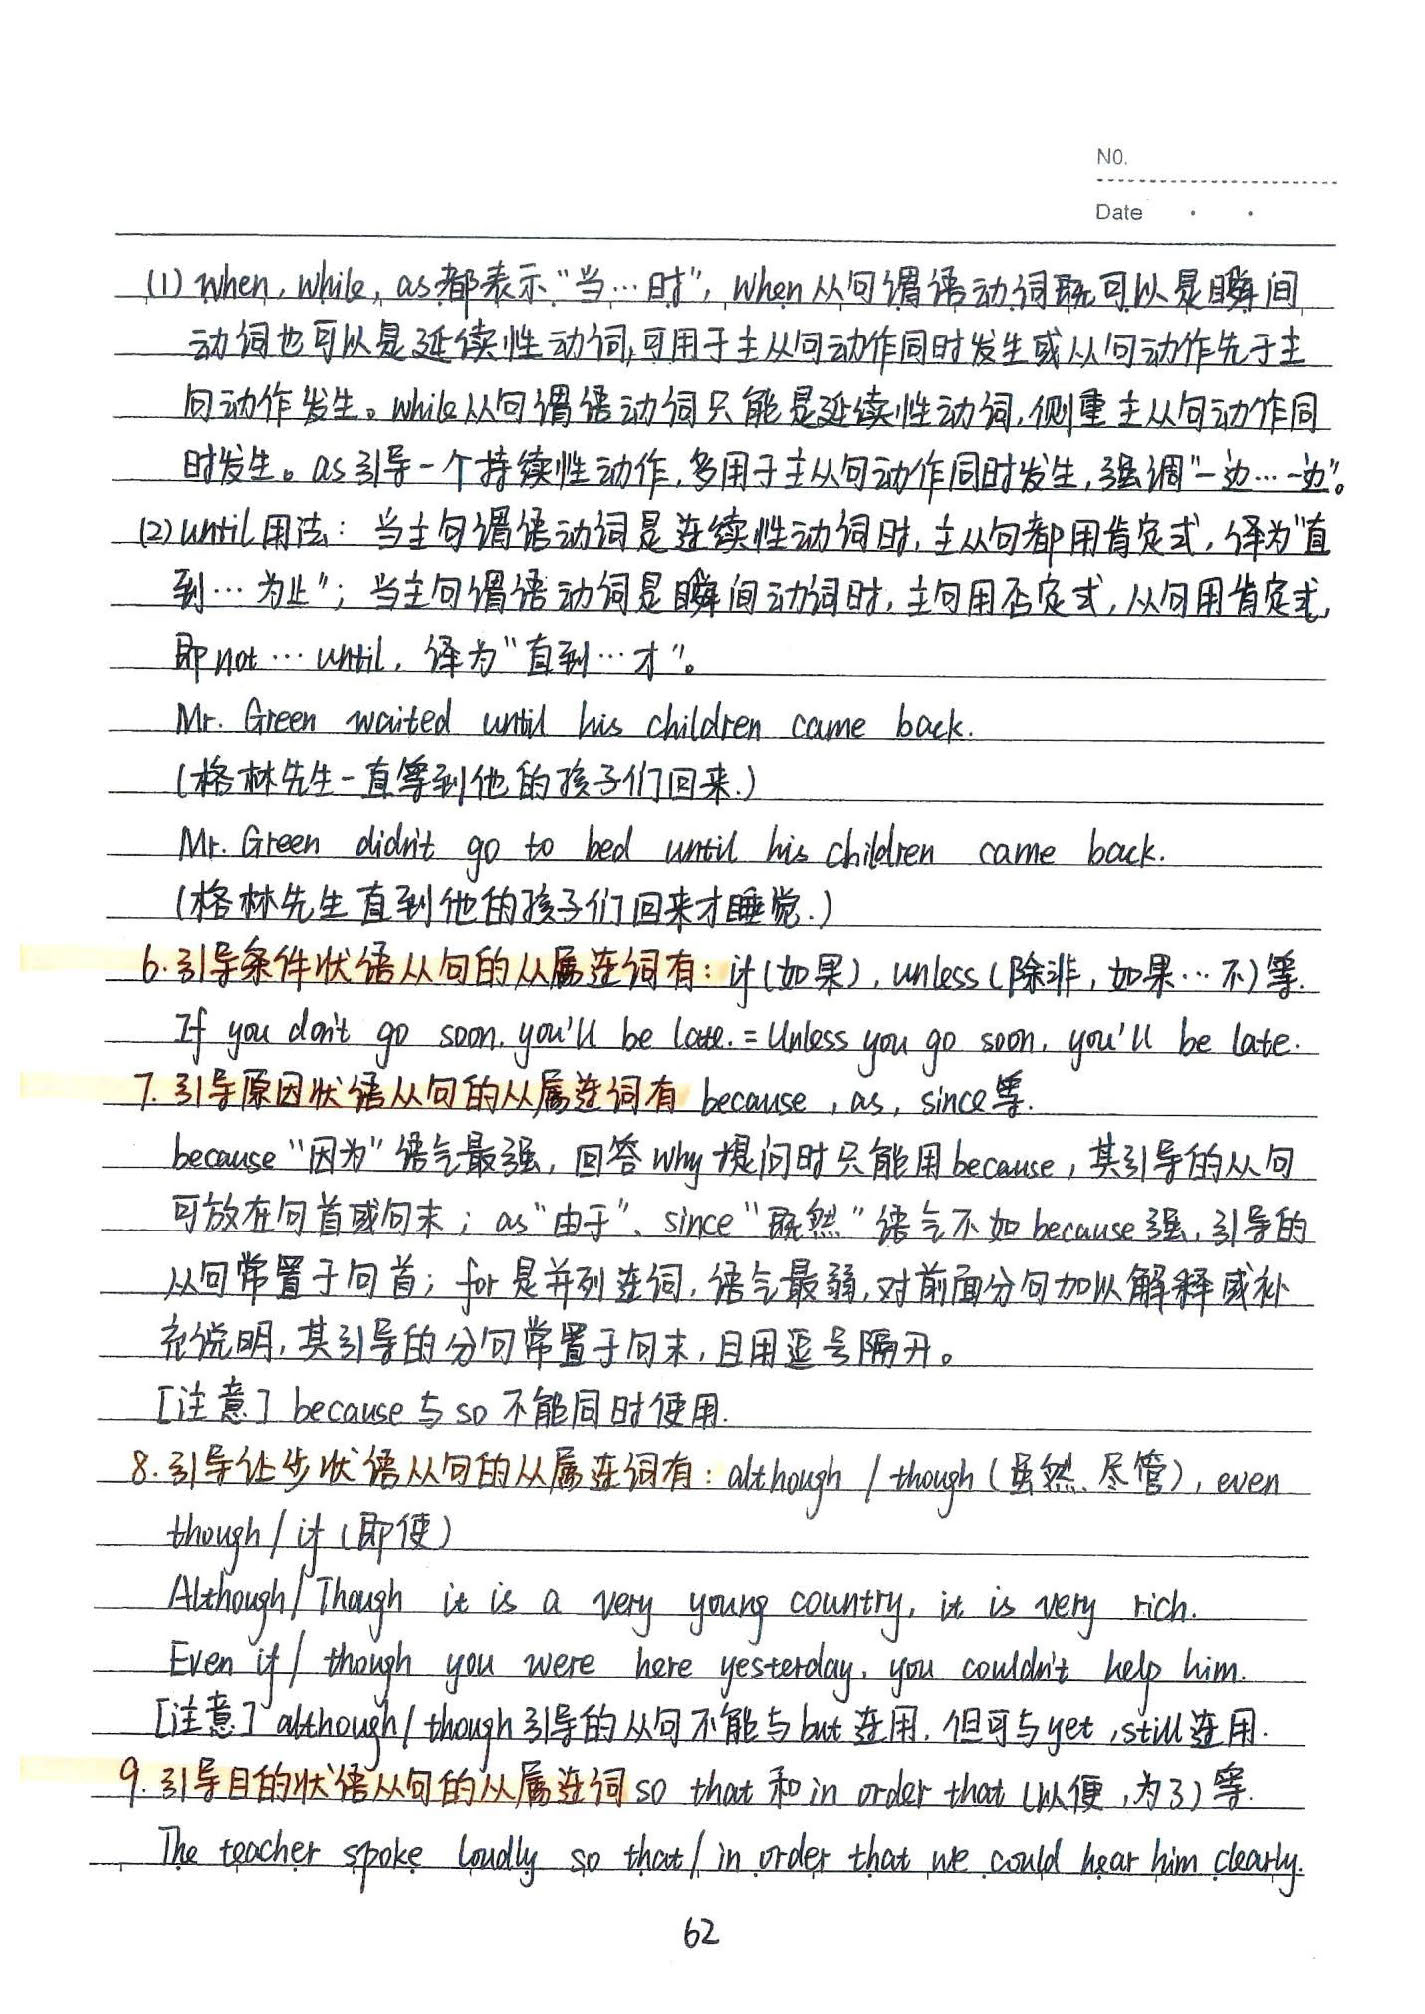 NO.
Date
(1) when, while, as都表示"当…时", when从句谓语动词既可以是瞬间
动词也可以是延续性动词,可用于主从句动作同时发生或从句动作先于主
句动作发生。while从句谓语动词只能是延续性动词,侧重主从句动作同
时发生。as引导一个持续性动作,多用于主从句动作同时发生,强调"一边…一边"。
(2) until用法: 当主句谓语动词是连续性动词时,主从句都用肯定式,译为"直
到…为止"; 当主句谓语动词是瞬间动词时,主句用否定式,从句用肯定式,
即not … until, 译为"直到…才"。
Mr. Green waited until his children came back.
(格林先生一直等到他的孩子们回来.)
Mr. Green didn't go to bed until his children came back.
(格林先生直到他的孩子们回来才睡觉.)
6.引导条件状语从句的从属连词有: if(如果), unless(除非,如果…不)等.
If you don't go soon, you'll be late. = Unless you go soon, you'll be late.
7.引导原因状语从句的从属连词有 because, as, since等.
because "因为"语气最强, 回答why提问时只能用because, 其引导的从句
可放在句首或句末; as"由于"、since "既然"语气不如because强,引导的
从句常置于句首; for是并列连词,语气最弱,对前面分句加以解释或补
充说明,其引导的分句常置于句末,且用逗号隔开。
[注意] because与so不能同时使用.
8.引导让步状语从句的从属连词有: although / though (虽然、尽管), even
though / if (即使)
Although/Though it is a very young country, it is very rich.
Even if/ though you were here yesterday, you couldn't help him.
[注意] although/though引导的从句不能与but连用, 但可与yet, still连用.
9.引导目的状语从句的从属连词so that和in order that (以便,为了)等.
The teacher spoke loudly so that/ in order that we could hear him clearly.
62